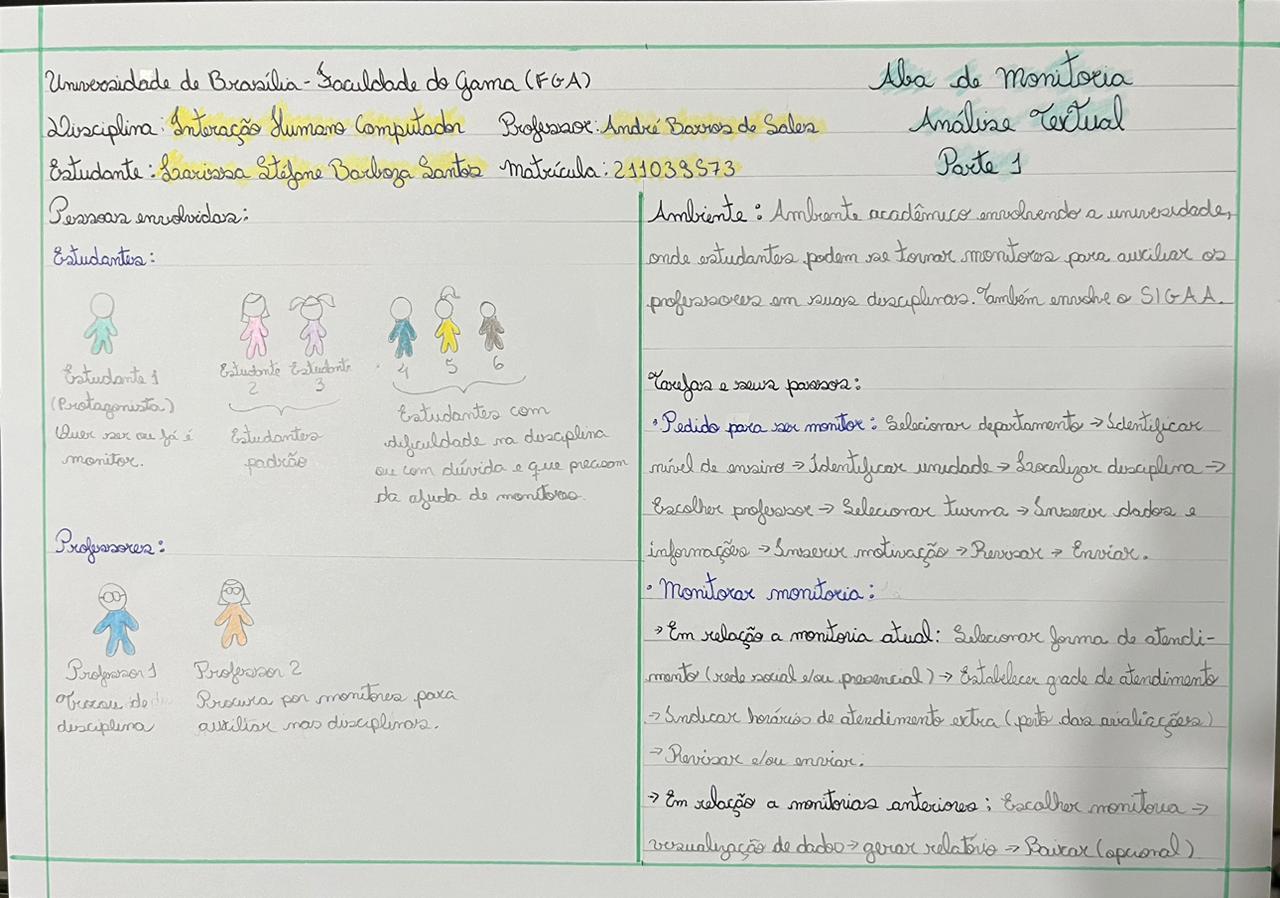 Universidade de Brasília - Faculdade do Gama (FGA)
Disciplina: Interação Humano Computador Professor: André Barros de Sales
Estudante: Larissa Stéfane Barboza Santos Matrícula: 211039573
Aba de Monitoria
Análise Textual
Parte 1
Pessoas envolvidas:
Estudantes:
Estudante 1
(Protagonista)
Quer ser ou já é
monitor.
Estudante Estudante
2 3
Estudantes
padrão
4 5 6
Estudantes com
dificuldade na disciplina
ou com dúvida e que precisam
da ajuda de monitores.
Professores:
Professor 1
Trocou de
disciplina
Professor 2
Procura por monitores para
auxiliar nas disciplinas.
Ambiente: Ambiente acadêmico envolvendo a universidade,
onde estudantes podem se tornar monitores para auxiliar os
professores em suas disciplinas. Também envolve o SIGAA.
Tarefas e seus passos:
• Pedido para ser monitor: Selecionar departamento → Identificar
nível de ensino → Identificar unidade → Localizar disciplina →
Escolher professor → Selecionar turma → Inserir dados e
informações → Inserir motivação → Revisar → Enviar.
• Monitorar monitoria:
→ Em relação a monitoria atual: Selecionar forma de atendi-
mento (rede social e/ou presencial) → Estabelecer grade de atendimento
→ Indicar horários de atendimento extra (perto das avaliações)
→ Revisar e/ou enviar.
→ Em relação a monitorias anteriores: Escolher monitoria →
visualização de dados → gerar relatório → Baixar (opcional)